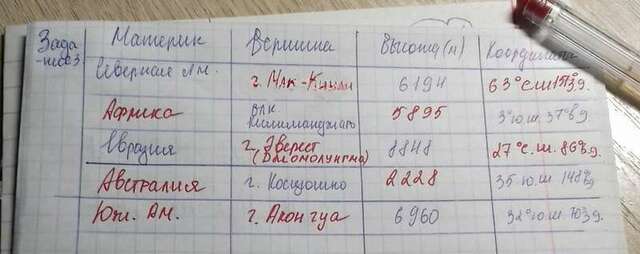 Зада-
ние3
Материк Вершина Высота(м) Координаты
Северная Ам. г. Мак-Кинли 6194 63°с.ш 151°з.д.
Африка влк Килиманджаро 5895 3°ю.ш. 37°в.д
Евразия г. Эверест (Джомолунгма) 8848 27°с.ш. 86°в.д.
Австралия г. Косцюшко 2228 35 ю.ш 148°в.д
Юж. Ам. г. Аконгуа 6960 32°ю.ш 70°з.д.